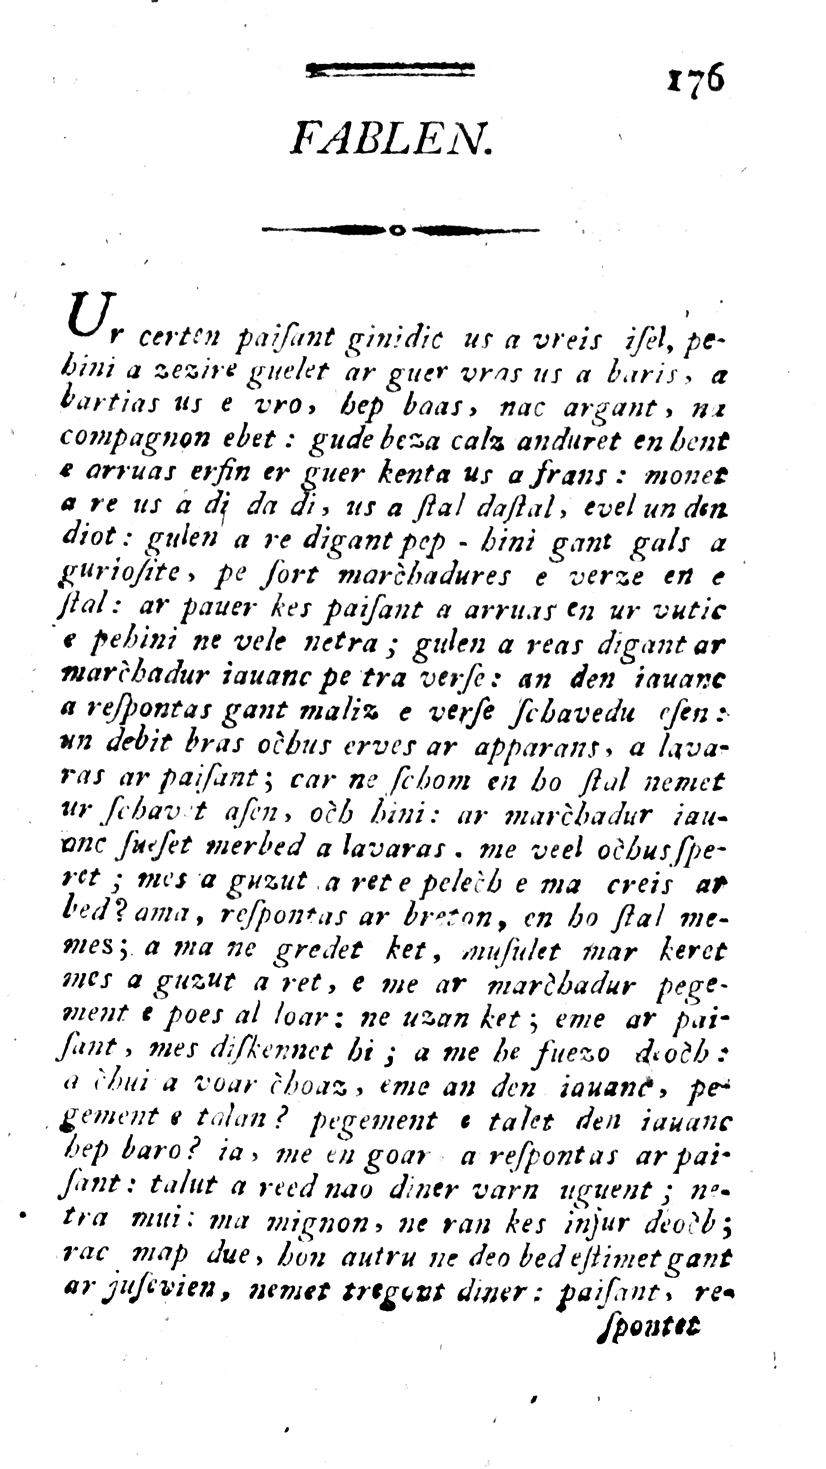 176
FABLEN.
Ur certen paiſant ginidic us a vreis iſel, pe-
hini a zezire guelet ar guer vras us a baris, a
bartias us e vro, hep baas, nac argant, na
compagnon ebet : gude beza calz anduret en hent
e arruas erfin er guer kenta us a frans : monet
a re us a di da di, us a ſtal daſtal, evel un den
diot : gulen a re digant pep - hini gant gals a
gurioſite, pe ſort marc̀hadures e verze en e
ſtal : ar pauer kes paiſant a arruas en ur vutic
e pehini ne vele netra ; gulen a reas digant ar
marc̀hadur iauanc pe tra verſe : an den iauanc
a reſpontas gant maliz e verſe ſchavedu eſen :
un debit bras oc̀hus erves ar apparans, a lava-
ras ar paiſant ; car ne ſchom en ho ſtal nemet
ur ſchavet aſen, oc̀h hini : ar marc̀hadur iau-
anc ſueſet merbed a lavaras . me veel oc̀husſpe-
ret ; mes a guzut a ret e pelec̀h e ma creis ar
bed? ama, reſpontas ar breton, en ho ſtal me-
mes ; a ma ne gredet ket, muſulet mar keret
mes a guzut a ret, e me ar marc̀hadur pege-
ment e poes al loar : ne uzan ket ; eme ar pai-
ſant, mes diſkennet hi ; a me he fuezo deoc̀h :
a c̀hui a voar c̀hoaz, eme an den iauanc, pe-
gement e talan ? pegement e talet den iauanc
hep baro ? ia, me en goar a reſpontas ar pai-
ſant : talut a reed nao diner varn uguent ; ne-
tra mui : ma mignon, ne ran kes injur deoc̀h ;
rac map due, hon autru ne deo bed eſtimet gant
ar juſevien, nemet tregont diner : paiſant, re-
ſpontet